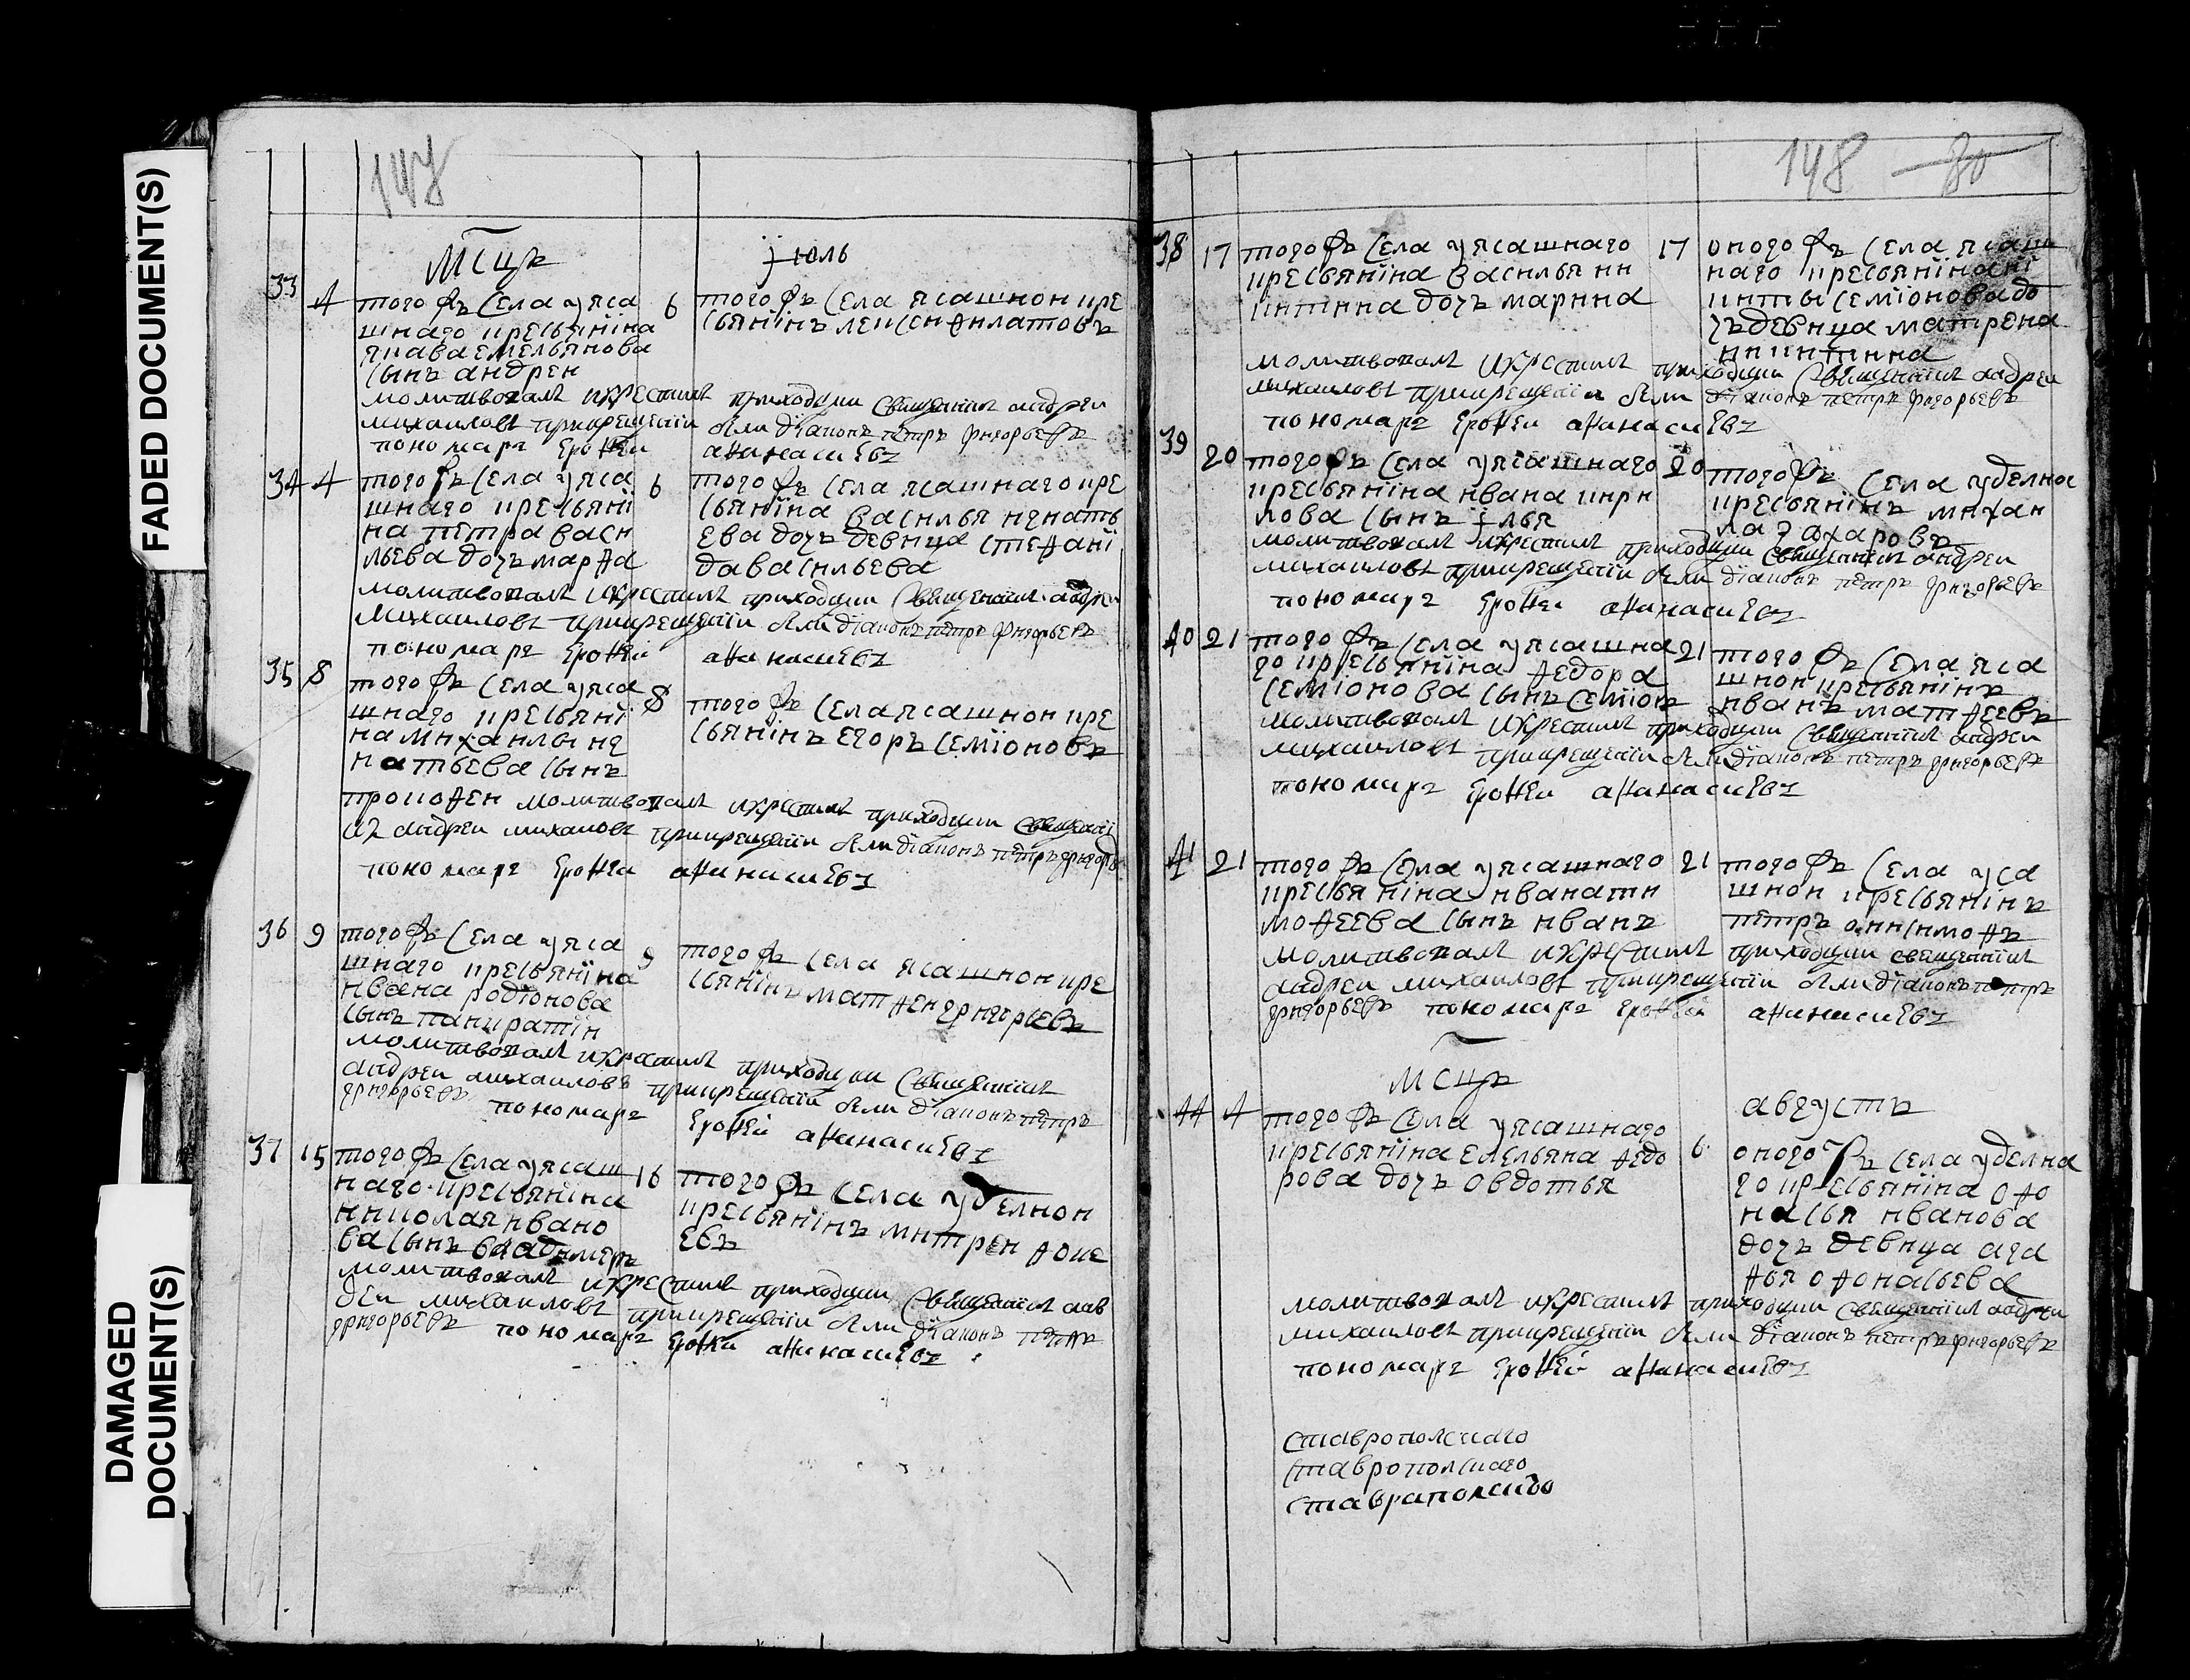 FADED DOCUMENT(S)
DAMAGED
DOCUMENT(S)
147
Мсцъ
июль
33
4
того жъ села у яса
шнаго крестьянїна
якава емельянова
сынъ андреи
6
того жъ села ясашнои кре
стьянїнъ
молитвовалъ и крестилъ приходции священникъ андреи
михаиловъ при крещенїи были дїаконъ петръ григорьевъ
пономарь ерофеи афинасиевъ
34 4
того жъ села у яса
шнаго крестьянї
на петра васи
льева дочъ марфа
6
того жъ села ясашнаго кре
стьянїна василья игнать
ева дочъ девица стефанї
да васильева
молитвовалъ и крестилъ приходции священникъ андреи
михаиловъ при крещенїи были дїаконъ петръ григорьевъ
пономарь ерофеи афинасиевъ
35 8
того жъ села у яса
шнаго крестьянї
на михаилы иг
натьева сынъ
8
того жъ села ясашнои кре
стьянїнъ егоръ семїоновъ
прокофеи молитвовалъ и крестилъ приходции священнї
къ андреи михаиловъ при крещенїи были дїаконъ петръ григорьевъ
пономарь ерофеи афинасиевъ
36 9
того жъ села у яса
шнаго крестьянїна
ивана родїонова
сынъ панкратїи
9
того жъ села ясашнои кре
стьянїнъ матфеи григорьевъ
молитвовалъ и крестилъ приходции священникъ
андреи михаиловъ при крещенїи были дїаконъ петръ
григорьевъ пономарь ерофеи афинасиевъ
37 15
того жъ села у ясаш
наго крестьянїна
николая ивано
ва сынъ владимеръ
16
того жъ села уделнои
крестьянїнъ митреи фоке
евъ
молитвовалъ и крестилъ приходции священникъ анд
реи михаиловъ при крещенїи были дїаконъ петръ
григорьевъ пономарь ерофеи афинасиевъ
148 80
38 17
того жъ села у ясашнаго
крестьянїна василья ни
китина дочъ марина
17
оного жъ села ясаш
наго крестьянїна нї
киты семїонова до
чъ девица матрена
никитина
молитвовалъ и крестилъ приходции священникъ андреи
михаиловъ при крещенїи были дїаконъ петръ григорьевъ
пономарь ерофеи афинасиевъ
39
20
того жъ села у ясашнаго
крестьянїна ивана кири
лова сынъ илья
20
того жъ села уделнои
крестьянїнъ михаи
ла захаровъ
молитвовалъ и крестилъ приходции священникъ андреи
михаиловъ при крещенїи были дїаконъ петръ григорьевъ
пономарь ерофеи афинасиевъ
40 21
того жъ села у ясашна
го крестьянїна федора
семїонова сынъ семїонъ
21
того жъ села яса
шнои крестьянїнъ
иванъ матфеевъ
молитвовалъ и крестилъ приходции священникъ андреи
михаиловъ при крещенїи были дїаконъ петръ григорьевъ
пономарь ерофеи афинасиевъ
41 21
того жъ села у ясашнаго
крестьянїна ивана ти
мофеева сынъ иванъ
21
того жъ села уса
шнои крестьянїнъ
петръ онисимофъ
молитвовалъ и крестилъ приходции священникъ
андреи михаиловъ при крещенїи были дїаконъ петръ
григорьевъ пономарь ерофеи афинасиевъ
Мсцъ
августъ
44 4
того жъ села у ясашнаго
крестьянїна емельяна федо
рова дочъ овдотья
6
оного жъ села уделна
го крестьянїна офо
насья иванова
дочъ девица ага
фья офонасьева
молитвовалъ и крестилъ приходции священникъ андреи
михаиловъ при крещенїи были дїаконъ петръ григорьевъ
пономарь ерофеи афинасиевъ
ставрополскаго
ставрополскаго